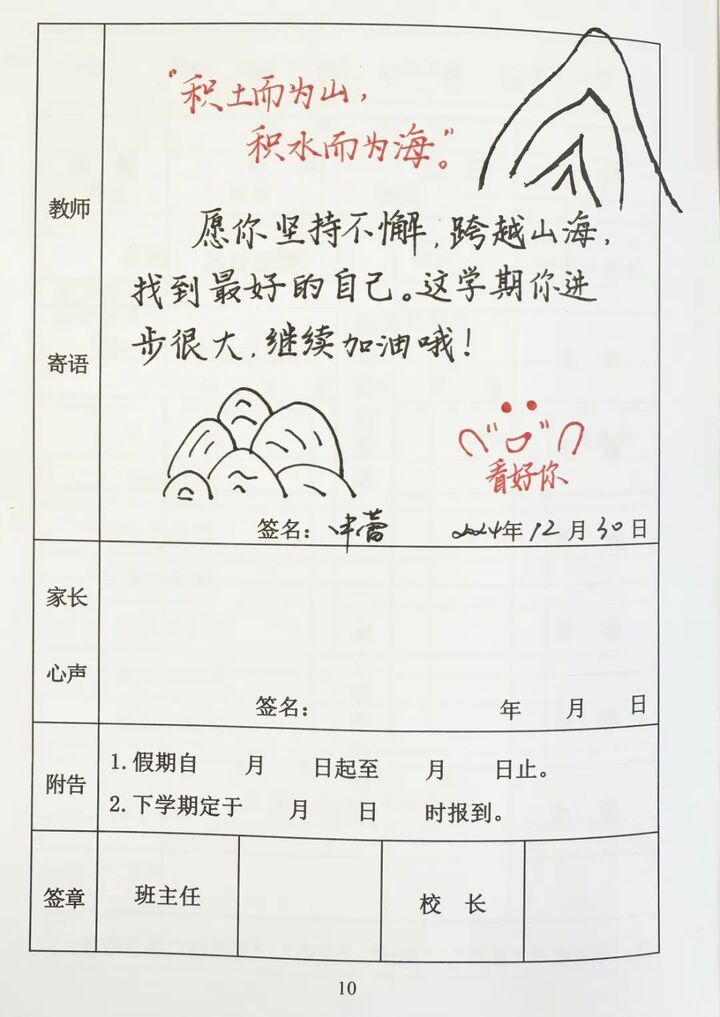 “积土而为山，
积水而为海”。
教师
愿你坚持不懈，跨越山海，
找到最好的自己。这学期你进
步很大，继续加油哦！
寄语
看好你
签名： 2024年12月30日
家长
心声
签名： 年 月 日
附告
1.假期自 月 日起至 月 日止。
2.下学期定于 月 日 时报到。
签章 班主任 校 长
10